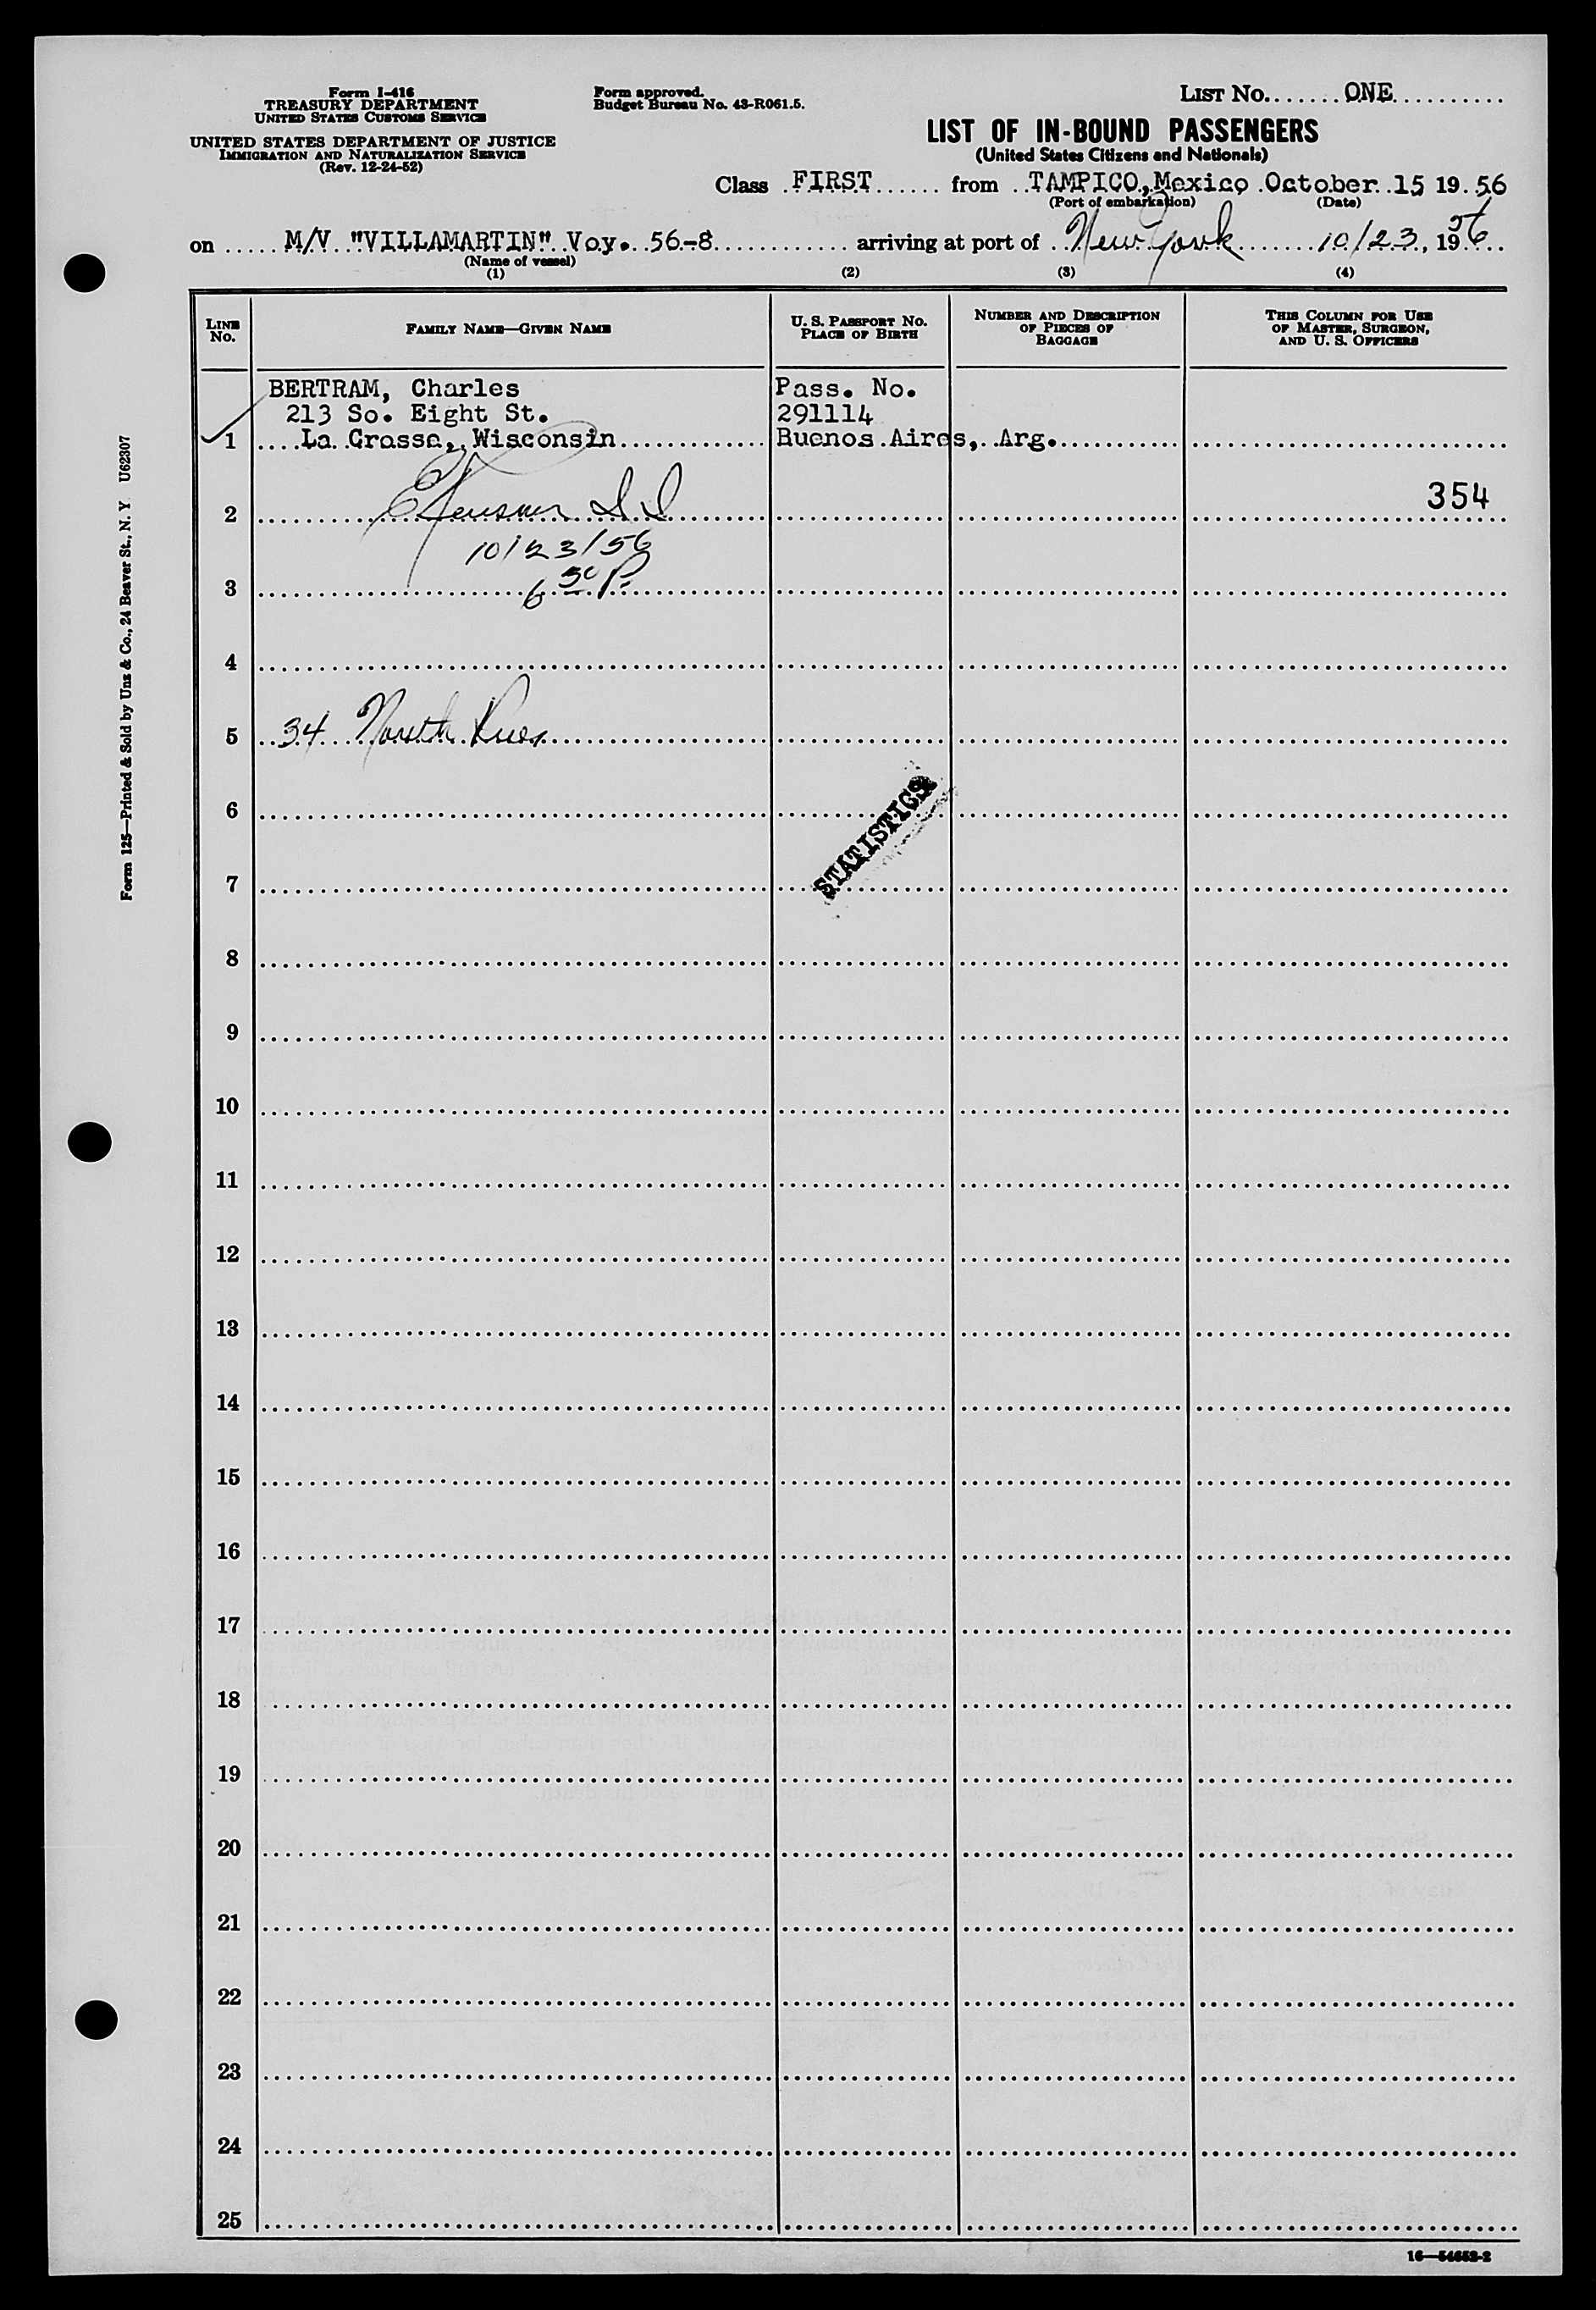 Form I-416
TREASURY DEPARTMENT
UNITED STATES CUSTOMS SERVICE
UNITED STATES DEPARTMENT OF JUSTICE
IMMIGRATION AND NATURALIZATION SERVICE
(Rev. 12-24-52)
Form approved.
Budget Bureau No. 43-R061.5.
LIST NO. ONE
LIST OF IN-BOUND PASSENGERS
(United States Citizens and Nationals)
Class FIRST from TAMPICO, Mexico October 15 19 56
(Port of embarkation) (Date)
on M/V "VILLAMARTIN" Voy. 56-8 arriving at port of New York 10/23, 1956
(Name of vessel)
(1) (2) (3) (4)
LINE NO.
FAMILY NAME—GIVEN NAME
U. S. PASSPORT NO.
PLACE OF BIRTH
NUMBER AND DESCRIPTION
OF PIECES OF
BAGGAGE
THIS COLUMN FOR USE
OF MASTER, SURGEON,
AND U. S. OFFICERS
BERTRAM, Charles Pass. No.
213 So. Eight St. 291114
1 La Crosse, Wisconsin Buenos Aires, Arg.
2 354
10/23/56
3 6 30 P.
4
5 34 North River
6
STATISTICS
7
8
9
10
11
12
13
14
15
16
17
18
19
20
21
22
23
24
25
Form 125—Printed & Sold by Unz & Co., 24 Beaver St., N. Y. U62307
16—54652-2